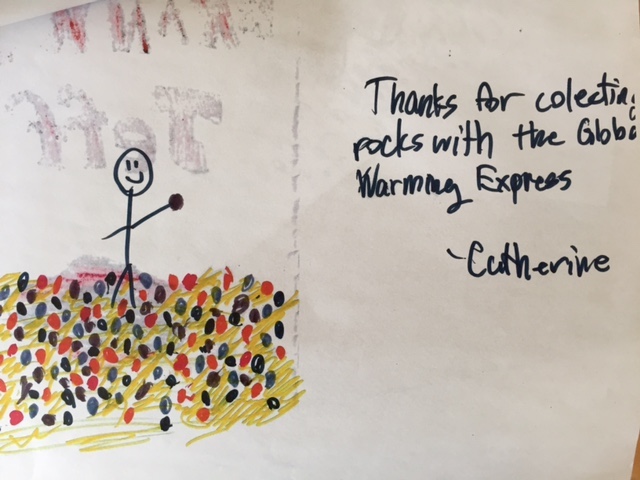 Jeff
Thanks for colectin
rocks with the Globa
Warming Express
-Catherine